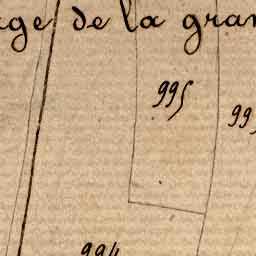 age de la gran
995
99
994